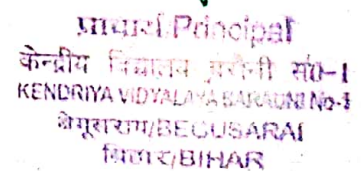 प्राचार्य/Principal
केन्द्रीय विद्यालय बरौनी सं०-I
KENDRIYA VIDYALAYA BARAUNI No-I
बेगूसराय/BEGUSARAI
बिहार/BIHAR